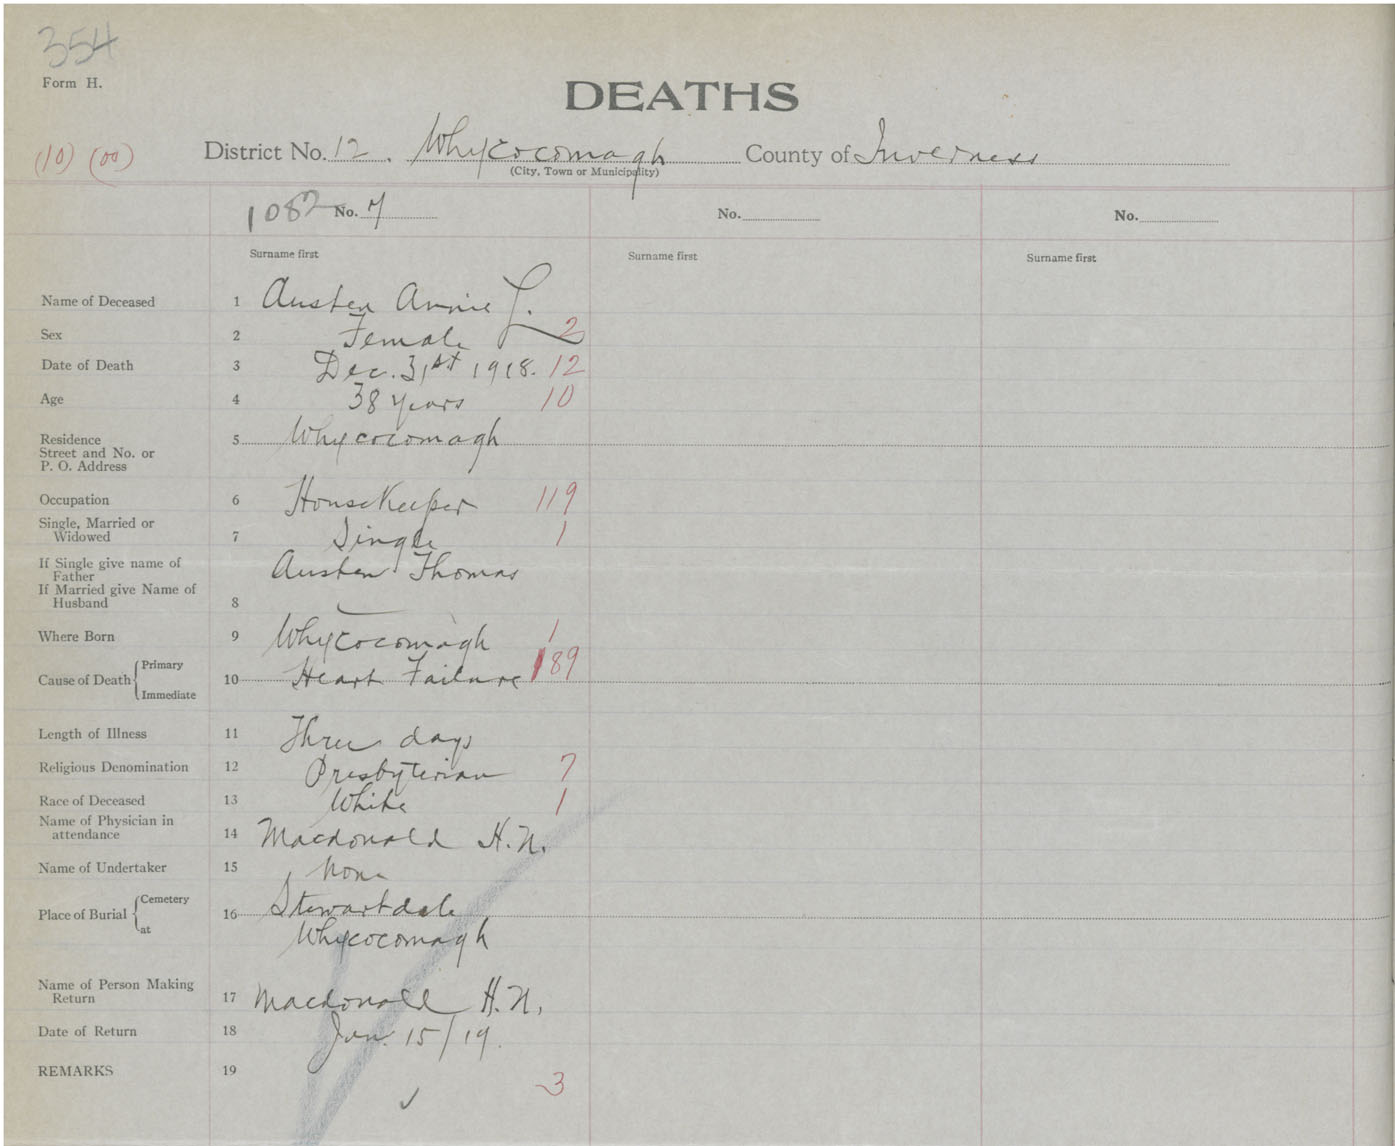 354
Form H.
DEATHS
(10) (00) District No. 12. Whycocomagh County of Inverness
(City, Town or Municipality)
1082 No. 7 No. No.
Surname first Surname first Surname first
Name of Deceased 1 Austen Annie L.
Sex 2 Female 2
Date of Death 3 Dec. 31st 1918. 12
Age 4 38 years 10
Residence 5 Whycocomagh
Street and No. or
P. O. Address
Occupation 6 HouseKeeper 119
Single, Married or
Widowed 7 Single 1
If Single give name of
Father Austen Thomas
If Married give Name of
Husband 8
Where Born 9 Whycocomagh 1
Cause of Death Primary
10 Heart Failure 189
Immediate
Length of Illness 11 Three days
Religious Denomination 12 Presbyterian 7
Race of Deceased 13 White 1
Name of Physician in
attendance 14 Macdonald H.N.
Name of Undertaker 15 None
Place of Burial Cemetery
16 Stewartdale
at Whycocomagh
Name of Person Making
Return 17 Macdonald H.N.
Date of Return 18 Jan. 15/19.
REMARKS 19
3